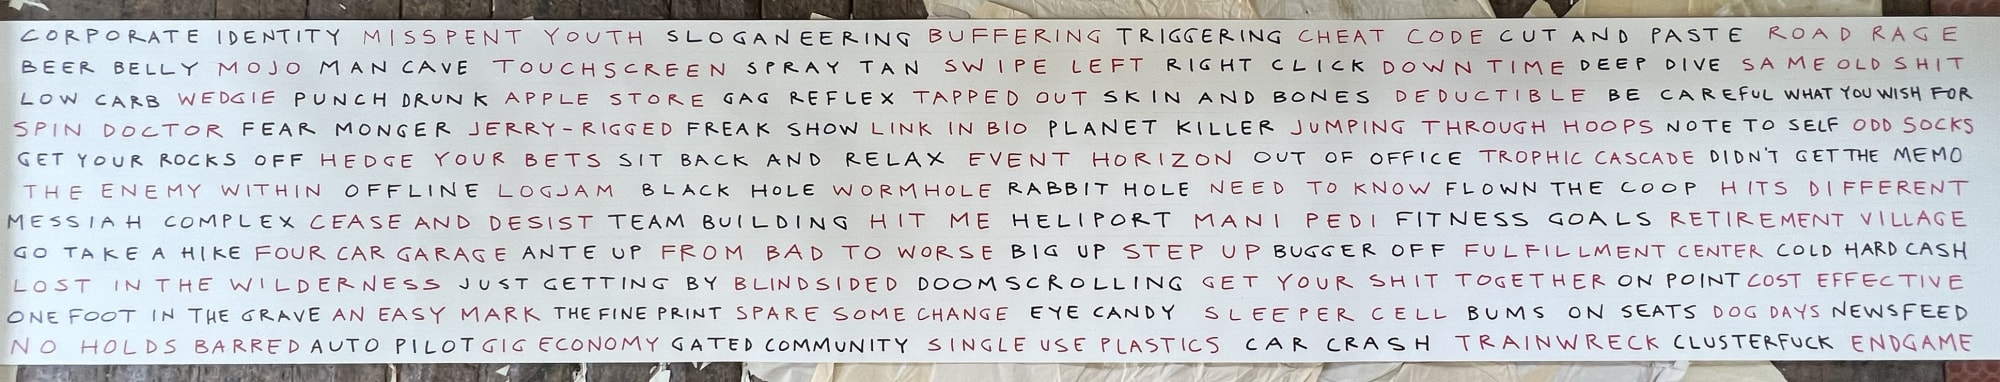 CORPORATE IDENTITY MISSPENT YOUTH SLOGANEERING BUFFERING TRIGGERING CHEAT CODE CUT AND PASTE ROAD RAGE
BEER BELLY MOJO MAN CAVE TOUCHSCREEN SPRAY TAN SWIPE LEFT RIGHT CLICK DOWN TIME DEEP DIVE SAME OLD SHIT
LOW CARB WEDGIE PUNCH DRUNK APPLE STORE GAG REFLEX TAPPED OUT SKIN AND BONES DEDUCTIBLE BE CAREFUL WHAT YOU WISH FOR
SPIN DOCTOR FEAR MONGER JERRY-RIGGED FREAK SHOW LINK IN BIO PLANET KILLER JUMPING THROUGH HOOPS NOTE TO SELF ODD SOCKS
GET YOUR ROCKS OFF HEDGE YOUR BETS SIT BACK AND RELAX EVENT HORIZON OUT OF OFFICE TROPHIC CASCADE DIDN'T GET THE MEMO
THE ENEMY WITHIN OFFLINE LOGJAM BLACK HOLE WORMHOLE RABBIT HOLE NEED TO KNOW FLOWN THE COOP HITS DIFFERENT
MESSIAH COMPLEX CEASE AND DESIST TEAM BUILDING HIT ME HELIPORT MANI PEDI FITNESS GOALS RETIREMENT VILLAGE
GO TAKE A HIKE FOUR CAR GARAGE ANTE UP FROM BAD TO WORSE BIG UP STEP UP BUGGER OFF FULFILLMENT CENTER COLD HARD CASH
LOST IN THE WILDERNESS JUST GETTING BY BLINDSIDED DOOMSCROLLING GET YOUR SHIT TOGETHER ON POINT COST EFFECTIVE
ONE FOOT IN THE GRAVE AN EASY MARK THE FINE PRINT SPARE SOME CHANGE EYE CANDY SLEEPER CELL BUMS ON SEATS DOG DAYS NEWSFEED
NO HOLDS BARRED AUTO PILOT GIG ECONOMY GATED COMMUNITY SINGLE USE PLASTICS CAR CRASH TRAINWRECK CLUSTERFUCK ENDGAME